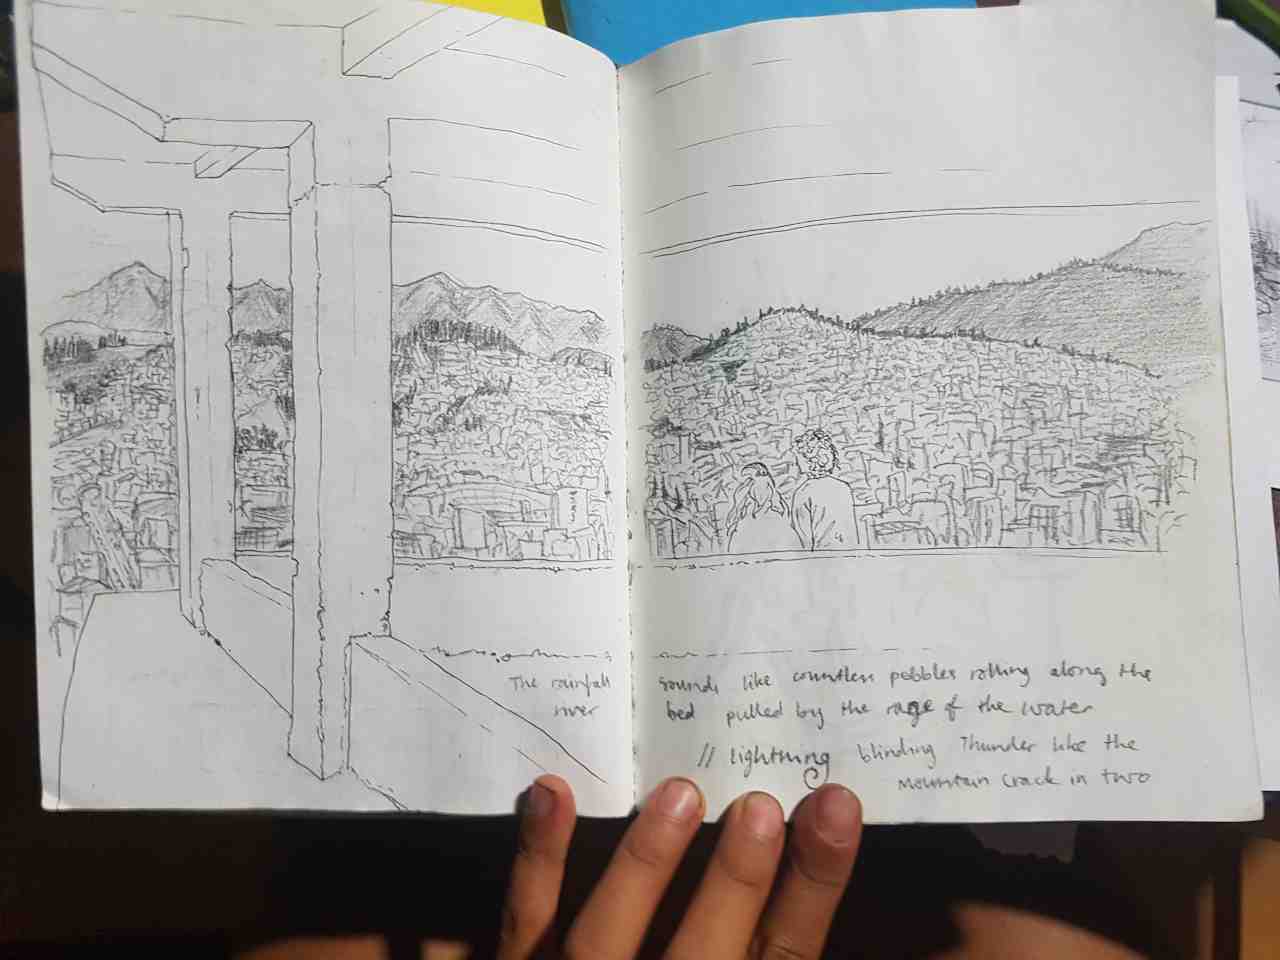 The rainfall sounds like countless pebbles rolling along the
river bed pulled by the rage of the water
// lightning blinding Thunder like the
mountain crack in two